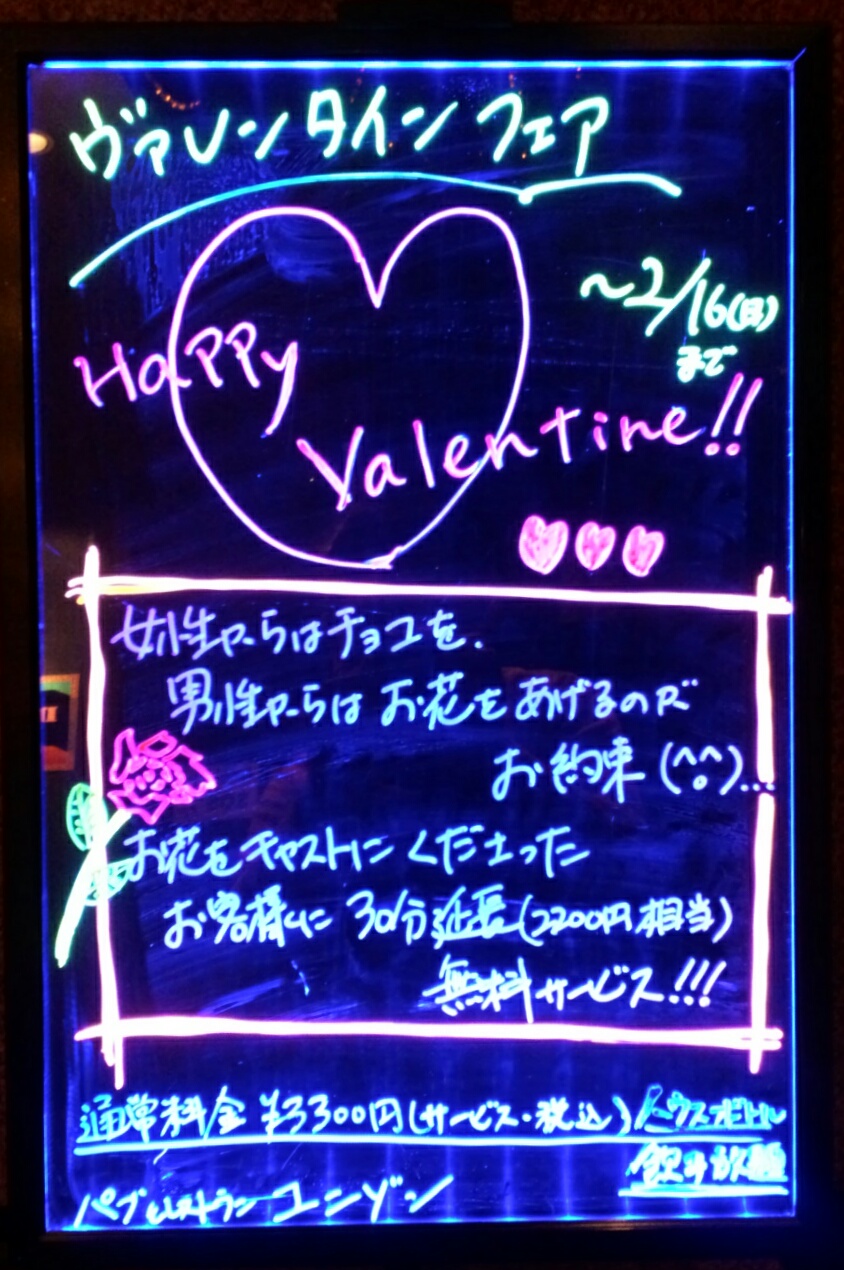 ヴァレンタインフェア
～2/16(日)
まで
Happy
Valentine!!
女性からはチョコを、
男性からはお花をあげるのが
お約束(^o^)...
お花をキャストにくださった
お客様に30分延長(2200円相当)
無料サービス!!!
通常料金 ¥3300円(サービス・税込)ハウスボトル
飲み放題
パブレストラン ユンゾン